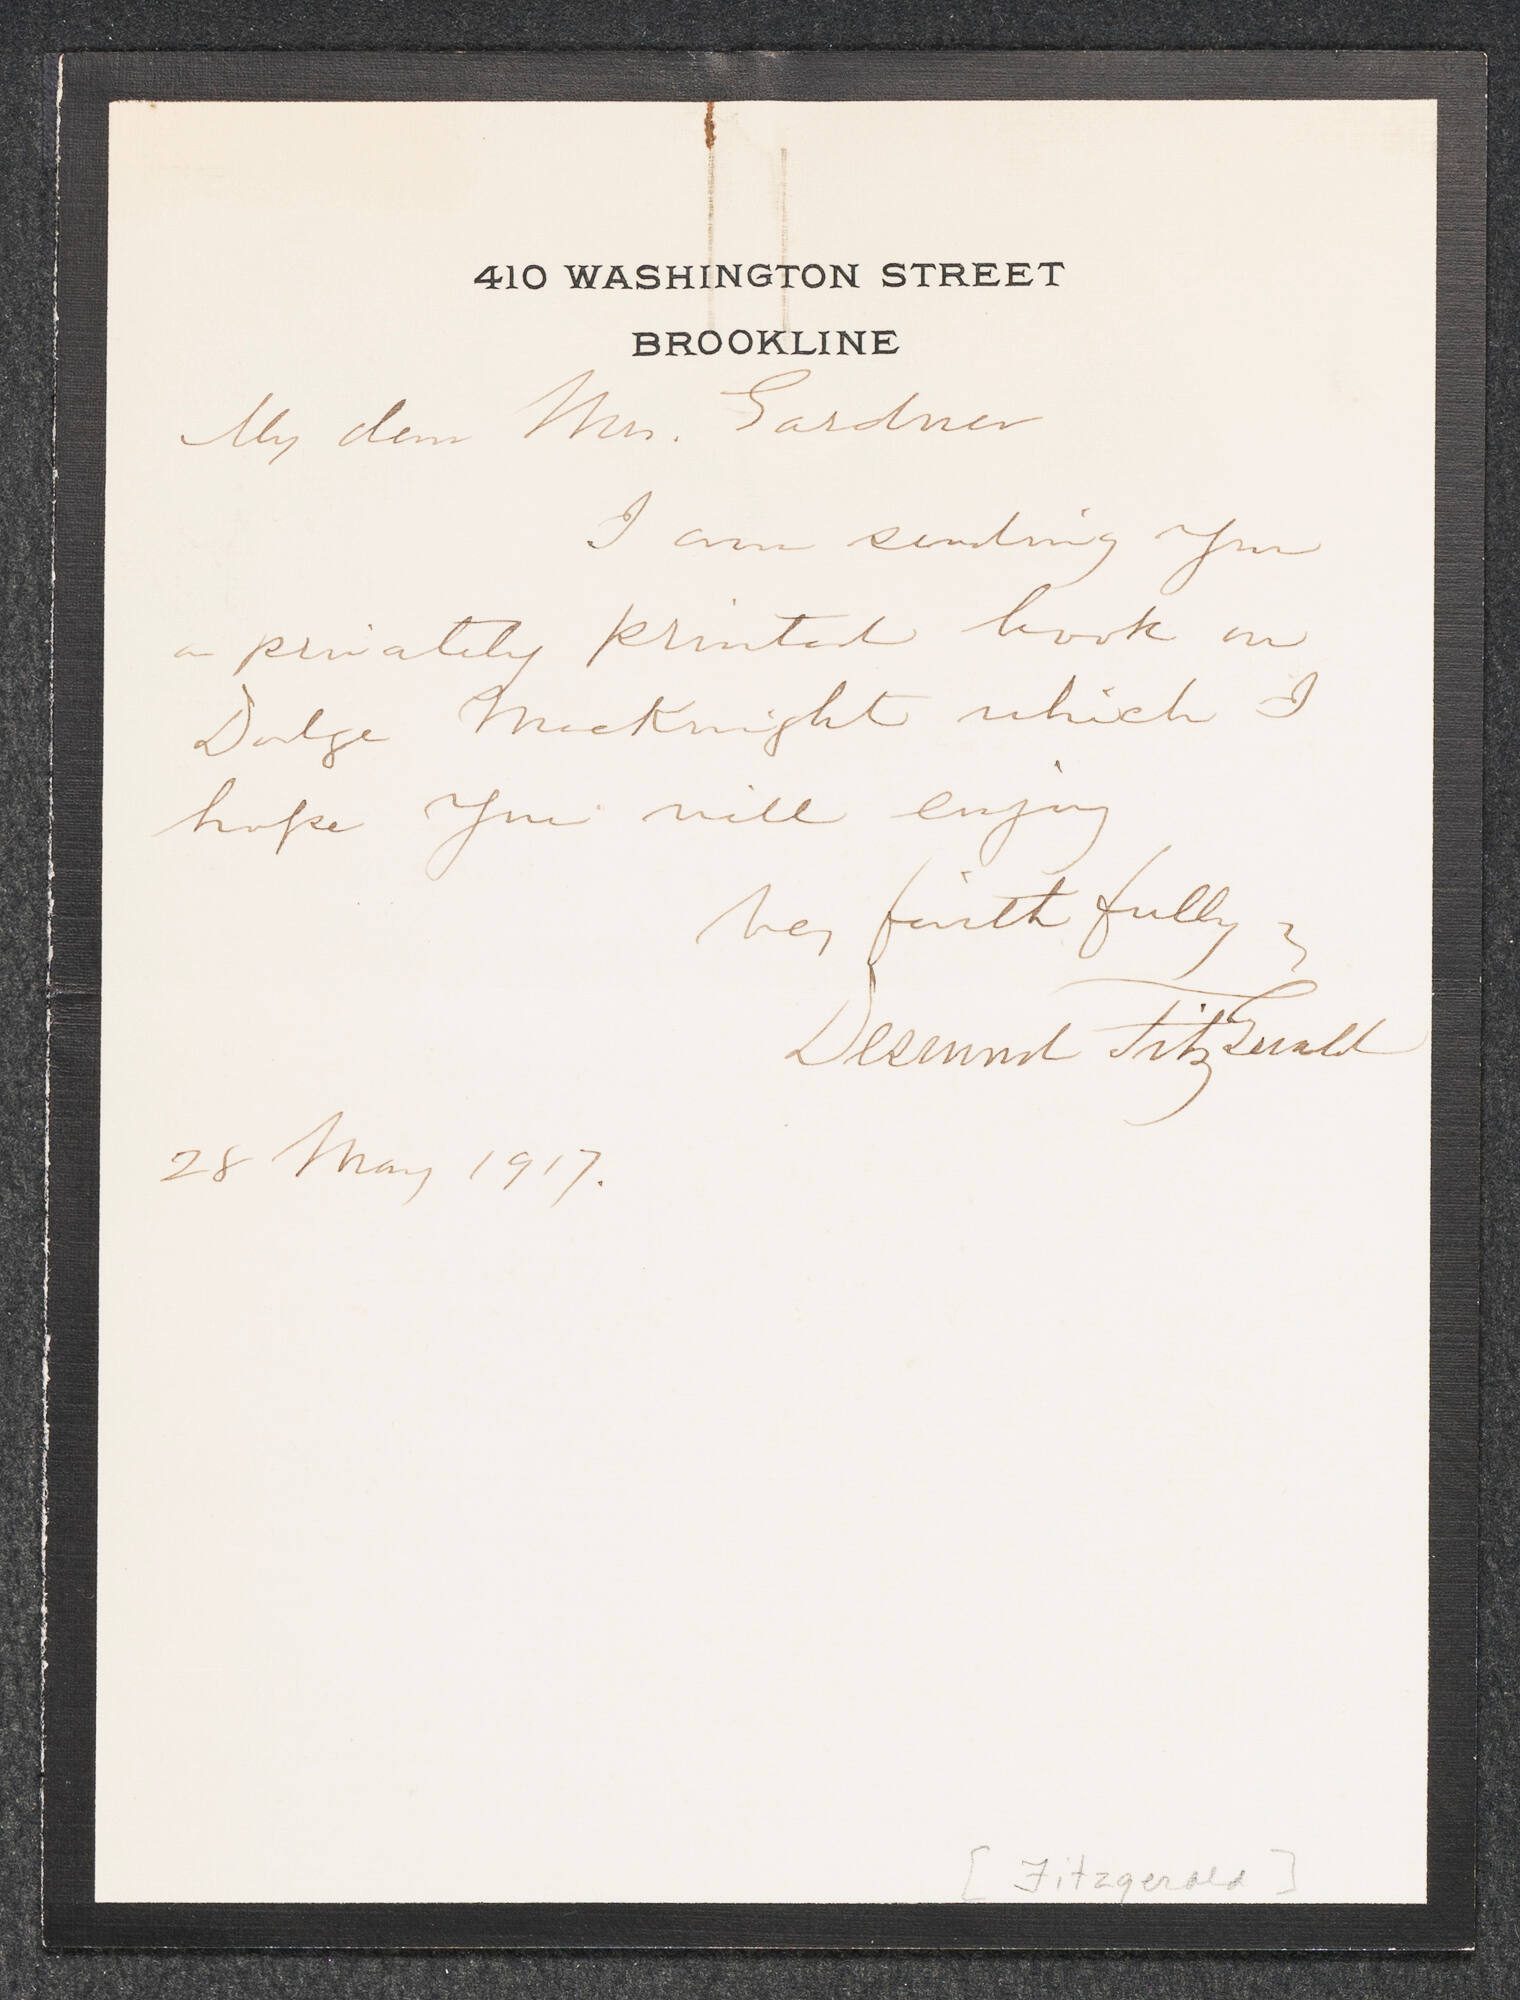 410 WASHINGTON STREET
BROOKLINE
My dear Mrs. Gardner
I am sending you
a privately printed book on
Dodge Macknight which I
hope you will enjoy
Very faithfully yrs
Desmond FitzGerald
28 May 1917.
[ Fitzgerald ]